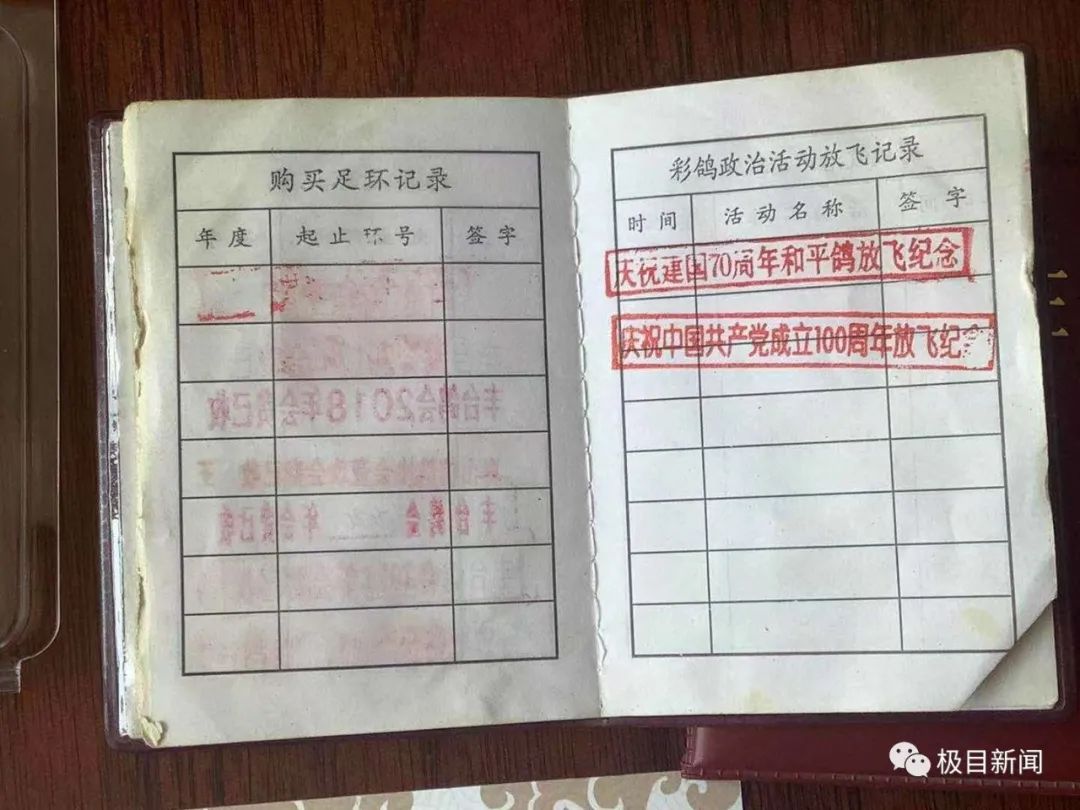 购买足环记录
年度 起止环号 签字
丰台鸽会2018年会费已收
丰台鸽会 年会费已收
彩鸽政治活动放飞记录
时间 活动名称 签字
庆祝建国70周年和平鸽放飞纪念
庆祝中国共产党成立100周年放飞纪念
极目新闻